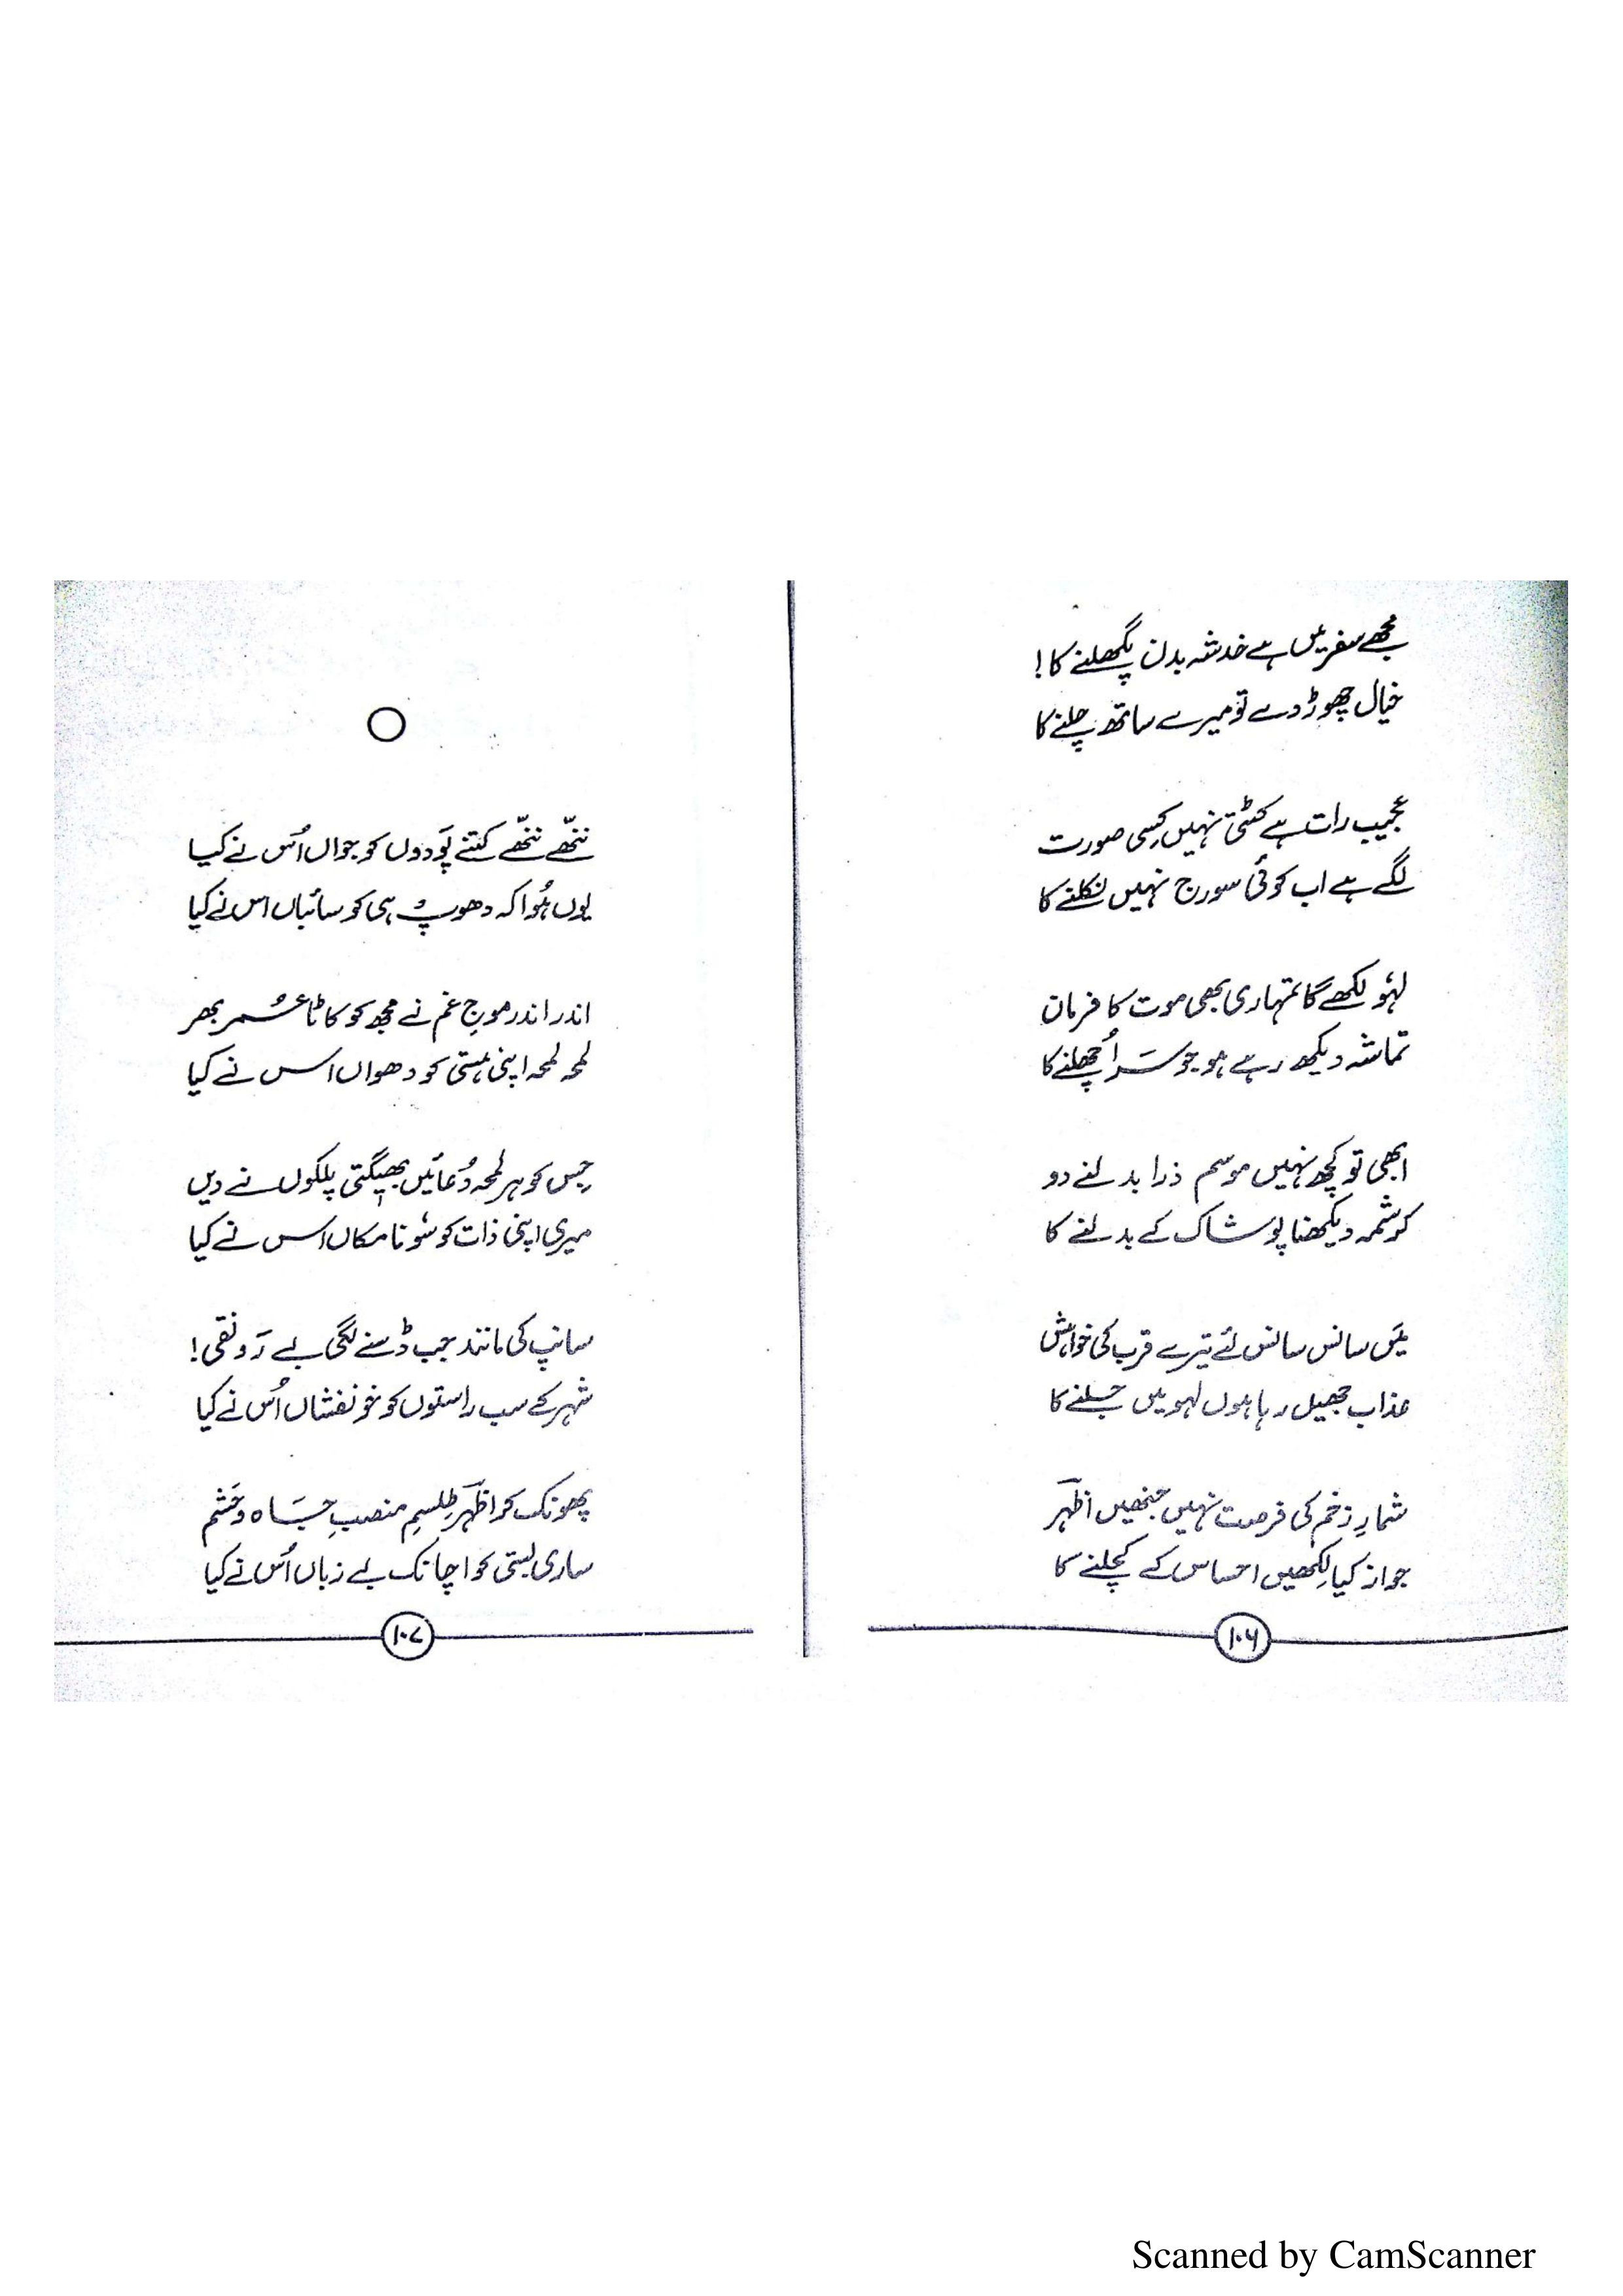 مجھے سفر میں ہے خدشہ بدن پگھلنے کا!
خیال چھوڑ دے تو میرے ساتھ چلنے کا
عجیب رات ہے کٹتی نہیں کِسی صورت
لگے ہے اب کوئی سورج نہیں نکلنے کا
لہُو لکھے گا تمہاری بھی موت کا فرمان
تماشہ دیکھ رہے ہو جو سَر اُچھلنے کا
ابھی تو کچھ نہیں موسم ذرا بدلنے دو
کرشمہ دیکھنا پوشاک کے بدلنے کا
مَیں سانس سانس لئے تیرے قرب کی خواہش
عذاب جھیل رہا ہوں لہو میں جلنے کا
شمارِ زخم کی فرصت نہیں جنھیں اظہر
جواز کیا لِکھیں احساس کے کچلنے کا
۱۰۶
ننھّے ننھّے کتنے پَودوں کو جواں اُس نے کیا
یوں ہُوا کہ دھوپ ہی کو سائباں اس نے کیا
اندر اندر موجِ غم نے مجھ کو کاٹا عُمر بھر
لمحہ لمحہ اپنی ہستی کو دھواں اس نے کیا
جِس کو ہر لمحہ دُعائیں بھیگتی پلکوں نے دیں
میری اپنی ذات کو سُونا مکاں اس نے کیا
سانپ کی مانند جب ڈسنے لگی بے رَونقی!
شہر کے سب راستوں کو خونفشاں اُس نے کیا
پھونک کر اظہر طِلسمِ منصبِ جَاہ و حَشم
ساری بستی کو اچانک بے زباں اُس نے کیا
۱۰۷
Scanned by CamScanner